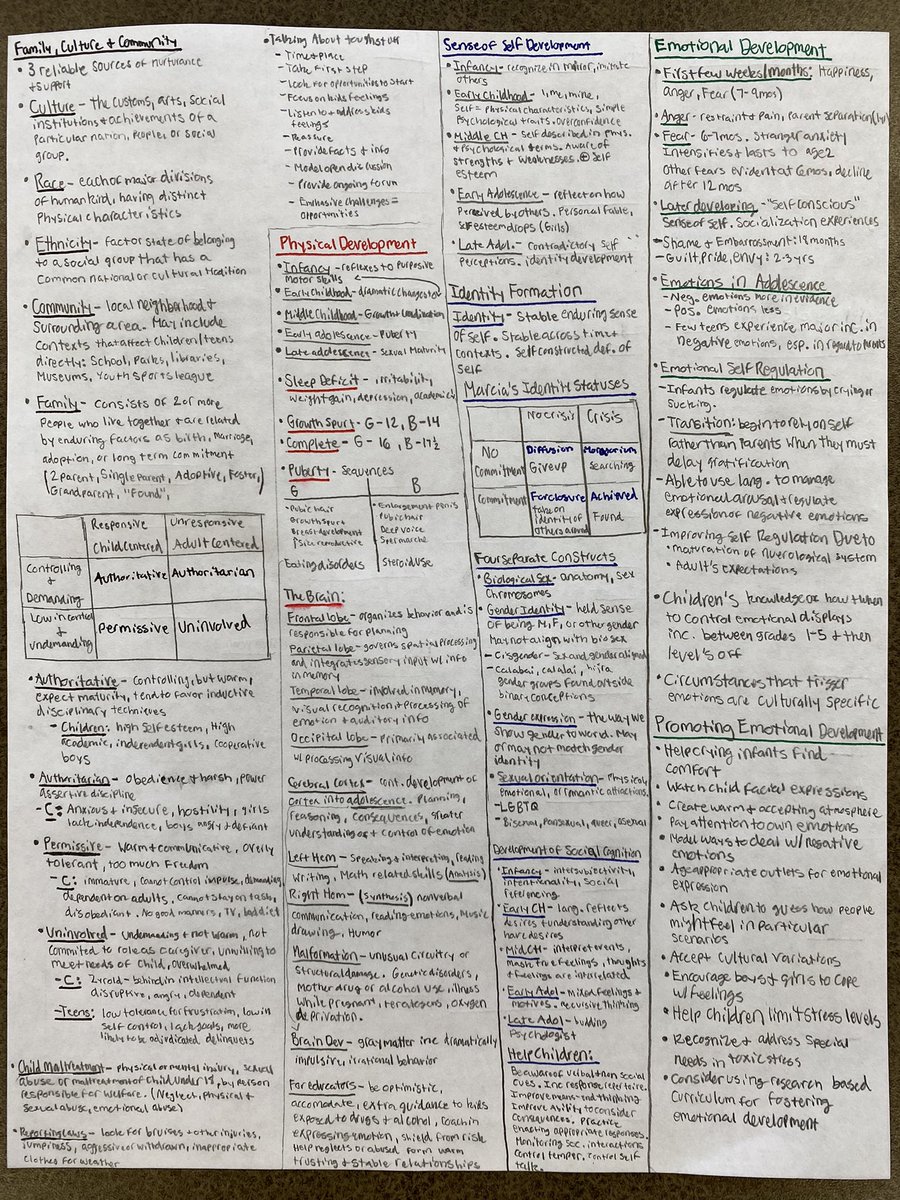 Family, Culture & Community
• 3 reliable sources of nurturance
& support
• Culture - the customs, arts, social
institutions & achievements of a
particular nation, people, or social
group.
• Race - each of major divisions
of humankind, having distinct
physical characteristics
• Ethnicity - fact or state of belonging
to a social group that has a
common national or cultural tradition
• Community - local neighborhood &
surrounding area. May include
contexts that affect children/teens
directly: School, Parks, libraries,
Museums, Youth sports league
• Family - consists of 2 or more
people who live together & are related
by enduring factors as birth, marriage,
adoption, or long term commitment
(2 parent, Single Parent, Adoptive, Foster,
Grandparent, "Found",)
Responsive Unresponsive
Child Centered Adult Centered
Controlling & Demanding Authoritative Authoritarian
Low in control & undemanding Permissive Uninvolved
• Authoritative - controlling, but warm,
expect maturity, tend to favor inductive
disciplinary techniques
- Children: high self esteem, high
academic, independent girls, cooperative
boys
• Authoritarian - obedience & harsh, power
assertive discipline
- C: Anxious & insecure, hostility, girls
lack independence, boys angry & defiant
• Permissive - warm & communicative, overly
tolerant, too much freedom
- C: immature, cannot control impulse, demanding,
dependent on adults, cannot stay on task,
disobediant. No good manners, TV, bad diet
• Uninvolved - undemanding & not warm, not
commited to role as caregiver, unwilling to
meet needs of child, overwhelmed
- C: 2 yr old - behind in intellectual function
disruptive, angry, dependent
- Teens: low tolerance for frustration, low in
self control, lack goals, more
likely to be adjudicated delinquets
• Child Maltreatment - physical or mental injury, sexual
abuse or maltreatment of child under 18, by person
responsible for welfare. (Neglect, physical &
sexual abuse, emotional abuse)
• Reporting Laws - look for bruises & other injuries,
jumpiness, aggressive or withdrawn, inappropriate
clothes for weather
• Talking About tough stuff
- Time & place
- Take first step
- Look for opportunities to start
- Focus on kids feelings
- Listen to & address kids
feelings
- Reassure
- Provide facts & info
- Model open discussion
- Provide ongoing forum
challenges =
opportunities
Physical Development
• Infancy - reflexes to purposive
motor skills
• Early Childhood - dramatic changes to
• Middle Childhood - Growth & coordination
• Early adolesence - Puberty
• Late adolescence - Sexual Maturity
• Sleep Deficit - irritability,
weight gain, depression, academics
• Growth Spurt G - 12, B - 14
• Complete - G - 16, B - 17½
• Puberty - Sequences
G B
- Pubic hair
- Growth spurt
- Breast development
- ↑ Size reproductive
Eating disorders
- Enlargement penis
- Pubic hair
- Deep voice
- Spermarche
Steroid use
The Brain:
Frontal lobe - organizes behavior and is
responsible for planning
Parietal lobe - governs spatial processing
and integrates sensory input w/ info
in memory
Temporal lobe - involved in memory,
visual recognition & processing of
emotion & auditory info
Occipital lobe - primarily associated
w/ processing visual info
Cerebral Cortex - cont. development of
cortex into adolescence. Planning,
reasoning, consequences, greater
understanding of & control of emotion
Left Hem - Speaking & interpreting, reading
writing, Math related skills (Analysis)
Right Hem - (Synthesis) nonverbal
communication, reading emotions, Music
drawing, Humor
Malformation - unusual circuitry or
structural damage. Genetic disorders,
Mother drug or alcohol use, illness
while pregnant, teratogens, oxygen
deprivation.
Brain Dev - gray matter inc. dramatically
impulsive, irrational behavior
For educators - be optimistic,
accomodate, extra guidance to kids
exposed to drugs & alcohol, coach in
expressing emotion, shield from risk
Help neglects or abused form warm
trusting & stable relationships
Sense of Self Development
• Infancy - recognize in mirror, imitate
others
• Early Childhood - I, me, mine,
Self = physical characteristics, simple
psychological traits. overconfidence
• Middle CH - Self described in phys.
& psychological terms. Aware of
strengths & weaknesses. ⊕ Self
esteem
• Early Adolescence - reflect on how
perceived by others. Personal fable,
self esteem drops (Girls)
• Late Adol. - contradictory self
perceptions. identity development
Identity Formation
Identity - Stable enduring sense
of self. Stable across time &
contexts. Self constructed def. of
self
Marcia's Identity Statuses
No crisis Crisis
No commitment Diffusion Give up Moratorium searching
Commitment Forclosure take on identity of others around Achieved Found
Four separate Constructs
• Biological Sex - anatomy, sex
chromosomes
• Gender Identity - held sense
of being M, F, or other gender
may not align with bio sex
- Cisgender - Sex and gender aligned
- calabai, calalai, hijra
gender groups found outside
binary conceptions
• Gender expression - the way we
show gender to world. May
or may not match gender
identity
• Sexual orientation - physical,
emotional, or romantic attractions.
- LGBTQ
- Bisexual, pansexual, queer, asexual
Development of Social Cognition
• Infancy - intersubjectivity,
intentionality, social
referencing
• Early CH - lang. reflects
desires & understanding other
have desires
• Mid. CH - interpret events,
mask true feelings, thoughts
& feelings are interrelated
• Early Adol - mixed feelings &
motives. recursive thinking
• Late Adol - budding
psychologist
Help Children:
Be aware of verbal & non social
cues. Inc response repertoire.
Improve means-end thinking.
Improve ability to consider
consequences. Practice
enacting appropriate responses.
Monitoring soc. interactions
control temper. control self
talk.
Emotional Development
• First few weeks/months: Happiness,
anger, Fear (7-9mos)
• Anger - restraint & pain, parent separation
• Fear - 6-7mos. Stranger anxiety
Intensifies & lasts to age 2
other fears evident at 6mos, decline
after 12 mos
• Later developing - "self conscious"
sense of self. Socialization experiences
- Shame & Embarrassment: 18 months
- Guilt, pride, envy: 2-3 yrs
• Emotions in Adolescence
- Neg. emotions more in evidence
- Pos. emotions less
- Few teens experience major inc. in
negative emotions, esp. in regard to parents
• Emotional Self Regulation
- Infants regulate emotions by crying or
sucking.
- Transition: begin to rely on self
rather than parents when they must
delay gratification
- Able to use lang. to manage
emotional arousal & regulate
expression of negative emotions
- Improving Self Regulation Due to
• maturation of nuerological system
• Adult's expectations
• Children's knowledge on how & when
to control emotional displays
inc. between grades 1-5 & then
level's off
• Circumstances that trigger
emotions are culturally specific
Promoting Emotional Development
• Help crying infants find
comfort
• Watch child facial expressions
• Create warm & accepting atmosphere
• Pay attention to own emotions
• Model ways to deal w/ negative
emotions
• Age appropriate outlets for emotional
expression
• Ask children to guess how people
might feel in particular
scenarios
• Accept cultural variations
• Encourage boys & girls to cope
w/ feelings
• Help children limit stress levels
• Recognize & address special
needs in toxic stress
• Consider using research based
curriculum for fostering
emotional development